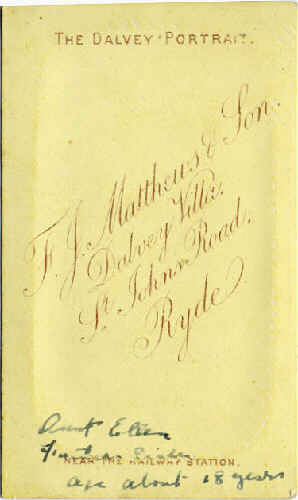 THE DALVEY PORTRAIT.
F. J. Matthews & Son.
Dalvey Villa,
St. Johns Road,
Ryde.
Aunt Ellen
NEAR THE RAILWAY STATION.
age about 18 years